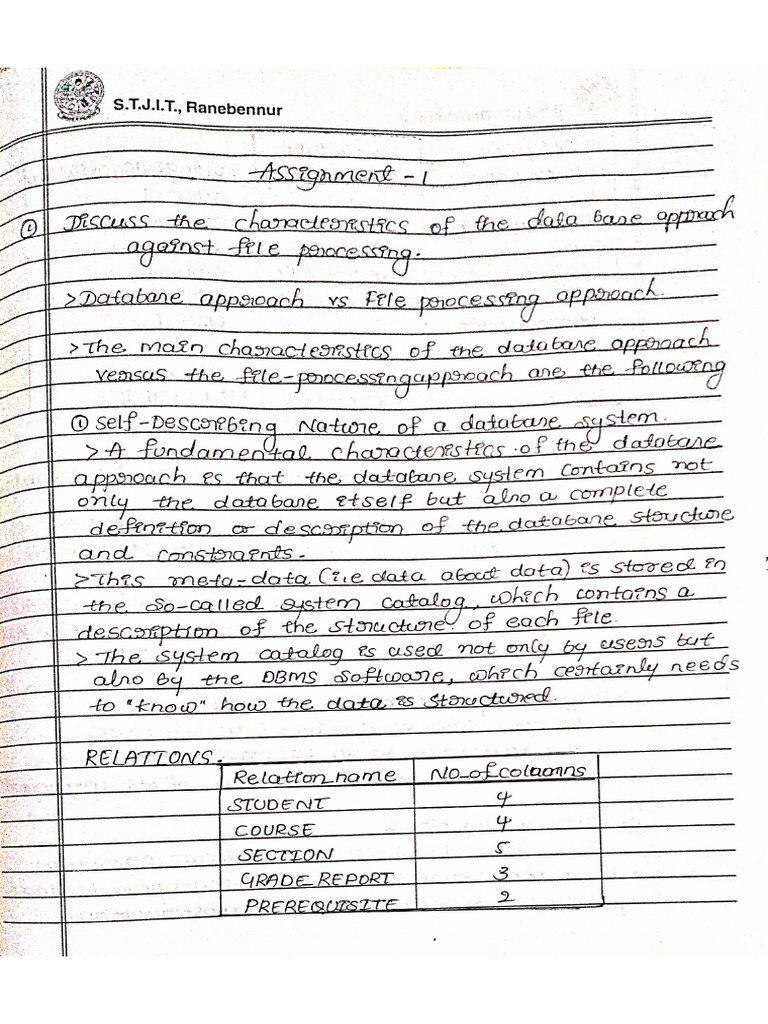 S.T.J.I.T., Ranebennur
Assignment - 1
① Discuss the characteristics of the data base approach
against file processing.
> Database approach vs File processing approach.
> The main characteristics of the database approach
versus the file-processing approach are the following
① Self-Describing Nature of a database system.
> A fundamental characteristics of the database
approach is that the database system contains not
only the database itself but also a complete
definition or description of the database structure
and constraints.
> This meta-data (i.e data about data) is stored in
the so-called system catalog, which contains a
description of the structure of each file.
> The system catalog is used not only by users but
also by the DBMS software, which certainly needs
to "know" how the data is structured.
RELATIONS.
Relation name No_of colaomns
STUDENT 4
COURSE 4
SECTION 5
GRADE REPORT 3
PREREQUISITE 2